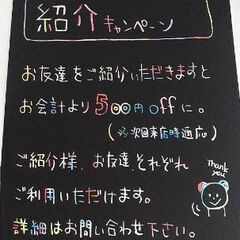 紹介キャンペーン
お友達をご紹介いただきますと
お会計より500円offに。
(※次回来店時適応)
ご紹介様、お友達、それぞれ
ご利用いただけます。
Thank you!
詳細はお問い合わせ下さい。